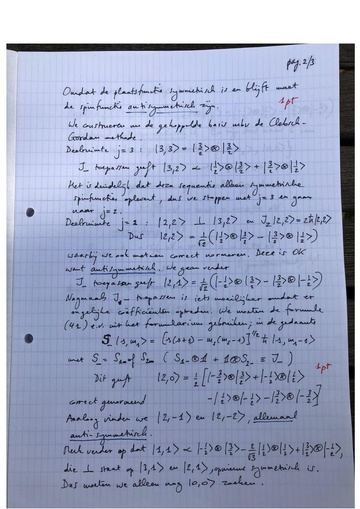 pag. 2/3
Omdat de plaatsfunctie symmetrisch is en blijft moet
de spinfunctie antisymmetrisch zijn.
1pt
We construeren nu de gekoppelde basis mbv de Clebsch-
Gordan methode
Deelruimte j=3 : |3,3> = |3/2>⊗|3/2>
J_ toepassen geeft |3,2> ∝ |1/2>⊗|3/2> + |3/2>⊗|1/2>
Het is duidelijk dat deze sequentie alleen symmetrische
spinfuncties oplevert, dus we stoppen met j=3 en gaan
naar j=2.
Deelruimte j=2 : |2,2> ⊥ |3,2> en J_z|2,2> = 2ħ|2,2>
Dus |2,2> = 1/√2 (|1/2>⊗|3/2> - |3/2>⊗|1/2>)
waarbij we ook meteen correct normeren. Deze is OK
want antisymmetrisch. We gaan verder
J_ toepassen geeft |2,1> = 1/√2 (|-1/2>⊗|3/2> - |3/2>⊗|-1/2>)
Nogmaals J_ toepassen is iets moeilijker omdat er
ongelijke coëfficiënten optreden. We moeten de formule
uit het formularium gebruiken, in de gedaante
S_ |s,m_s> = [s(s+1) - m_s(m_s-1)]^1/2 ħ |s,m_s-1>
met S_ = S_1- of S_2- ( S_1-⊗1 + 1⊗S_2- = J_ )
1pt
Dit geeft |2,0> = 1/2 [|-3/2>⊗|3/2> + |-1/2>⊗|1/2>
- |1/2>⊗|-1/2> - |3/2>⊗|-3/2>]
correct genormeerd
Analoog vinden we |2,-1> en |2,-2>, allemaal
anti-symmetrisch.
Merk verder op dat |1,1> ∝ |-1/2>⊗|3/2> - 2/√3 |1/2>⊗|1/2> + |3/2>⊗|-1/2>,
die ⊥ staat op |3,1> en |2,1>, opnieuw symmetrisch is.
Dus moeten we alleen nog |0,0> zoeken.